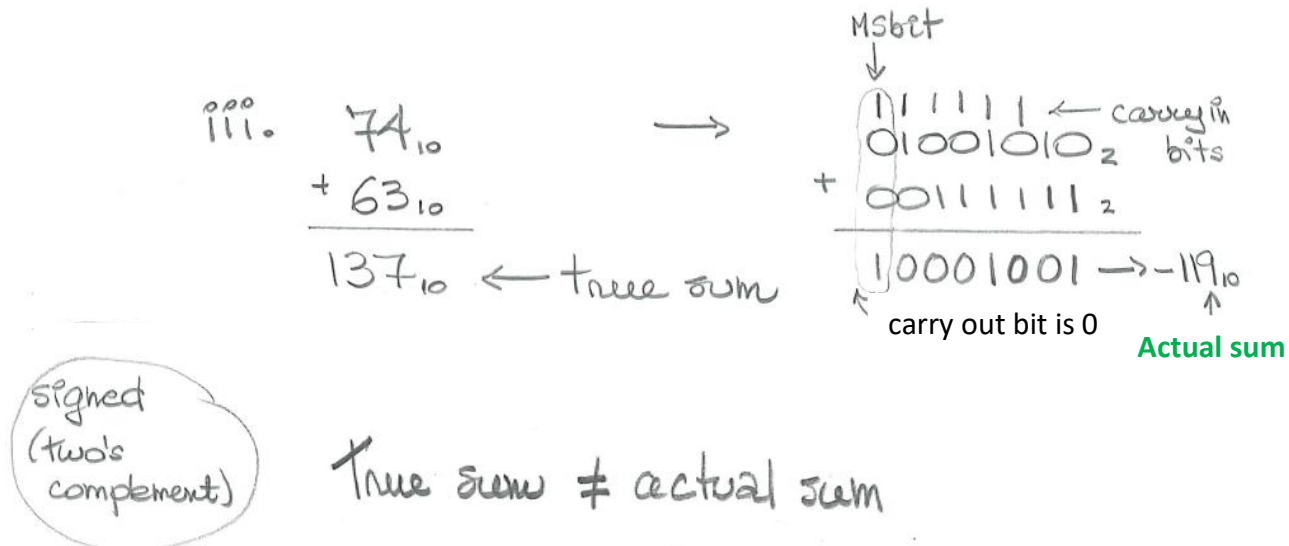 MSbit
iii. 74₁₀ → 111111 ← carry in bits
01001010₂
+ 63₁₀ + 00111111₂
137₁₀ ← true sum 10001001 → -119₁₀
carry out bit is 0
Actual sum
signed
(two's
complement)
True sum ≠ actual sum